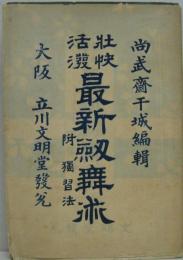 尚武齋干城編輯
壯快
活潑
最新劔舞術
附獨習法
大阪 立川文明堂發兌